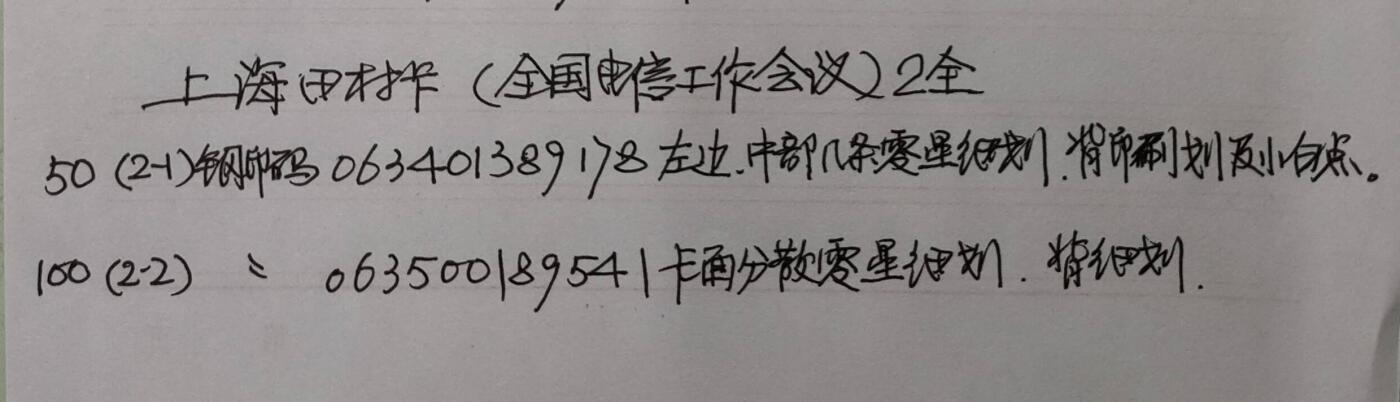 上海田村卡(全国电信工作会议)2全
50(2-1)钢印码063401389178左边.中部几条零星细划.背印刷划及小白点。
100(2-2) 〃 063500189541卡面分散零星细划.背细划.